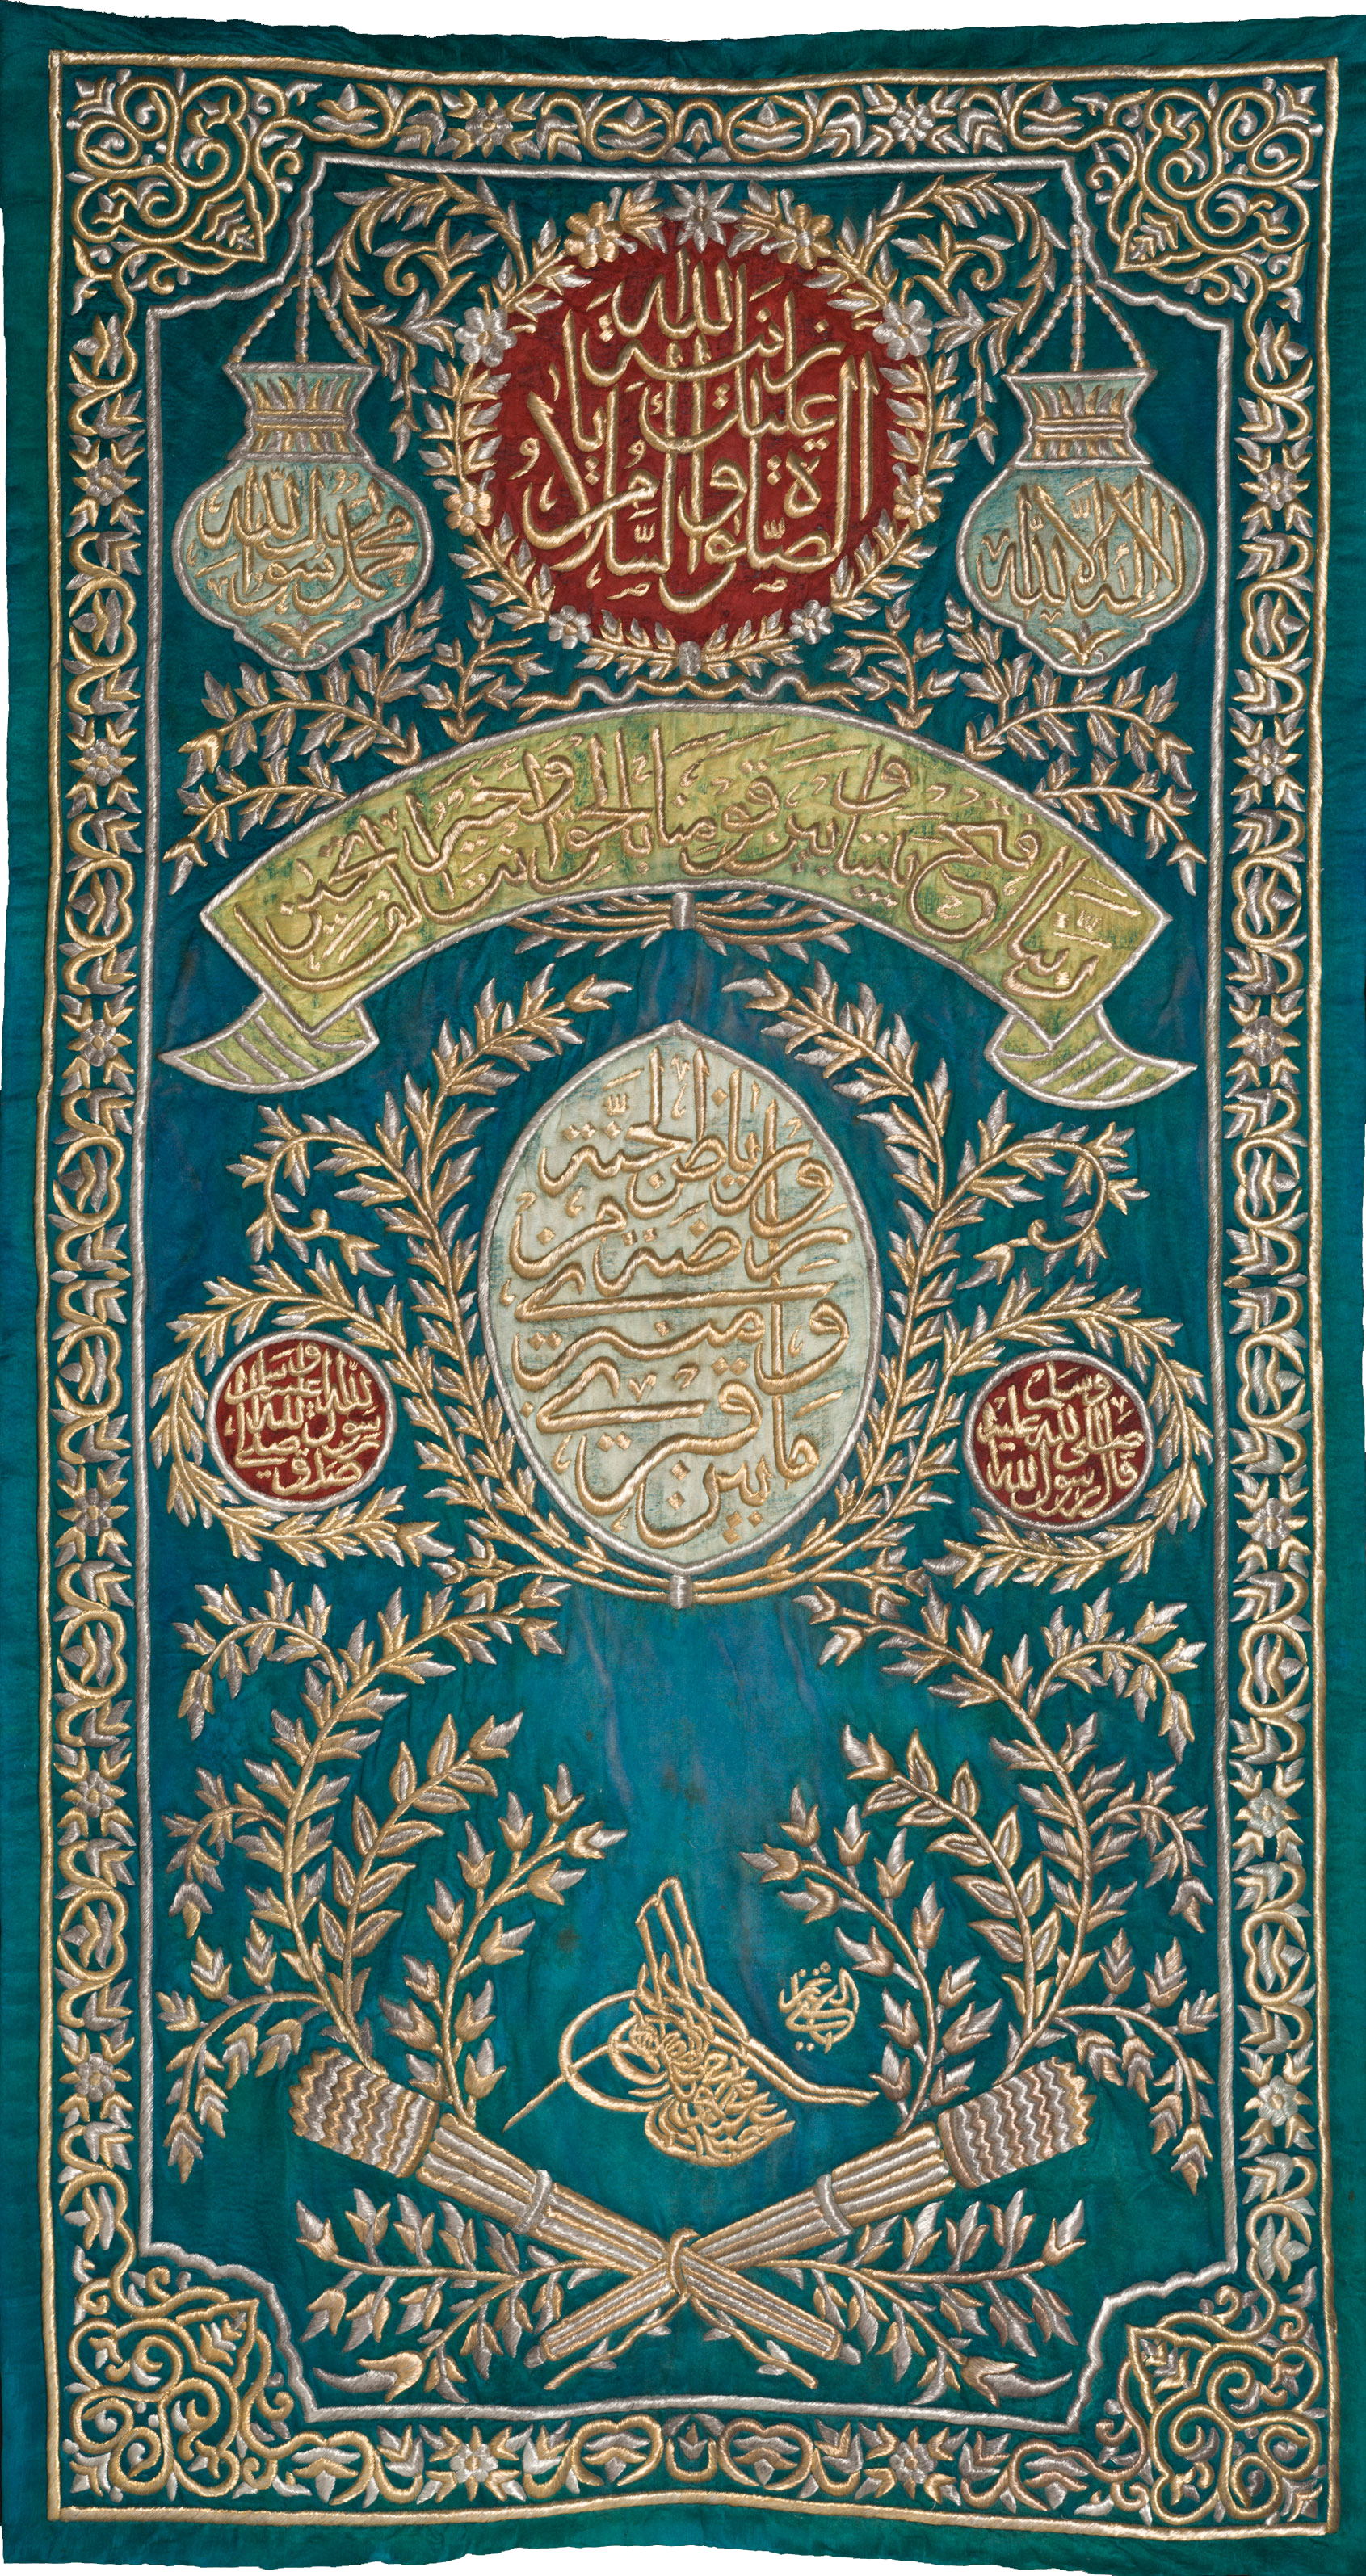 الصلوة والسلام عليك يا
الله
لا اله الا الله
محمد رسول الله
ربنا افتح بيننا وبين قومنا بالحق وانت خير الفاتحين
قال رسول الله صلى الله عليه وسلم
ما بين قبري
ومنبري
روضة من
رياض الجنة
صدق رسول الله صلى الله عليه وسلم